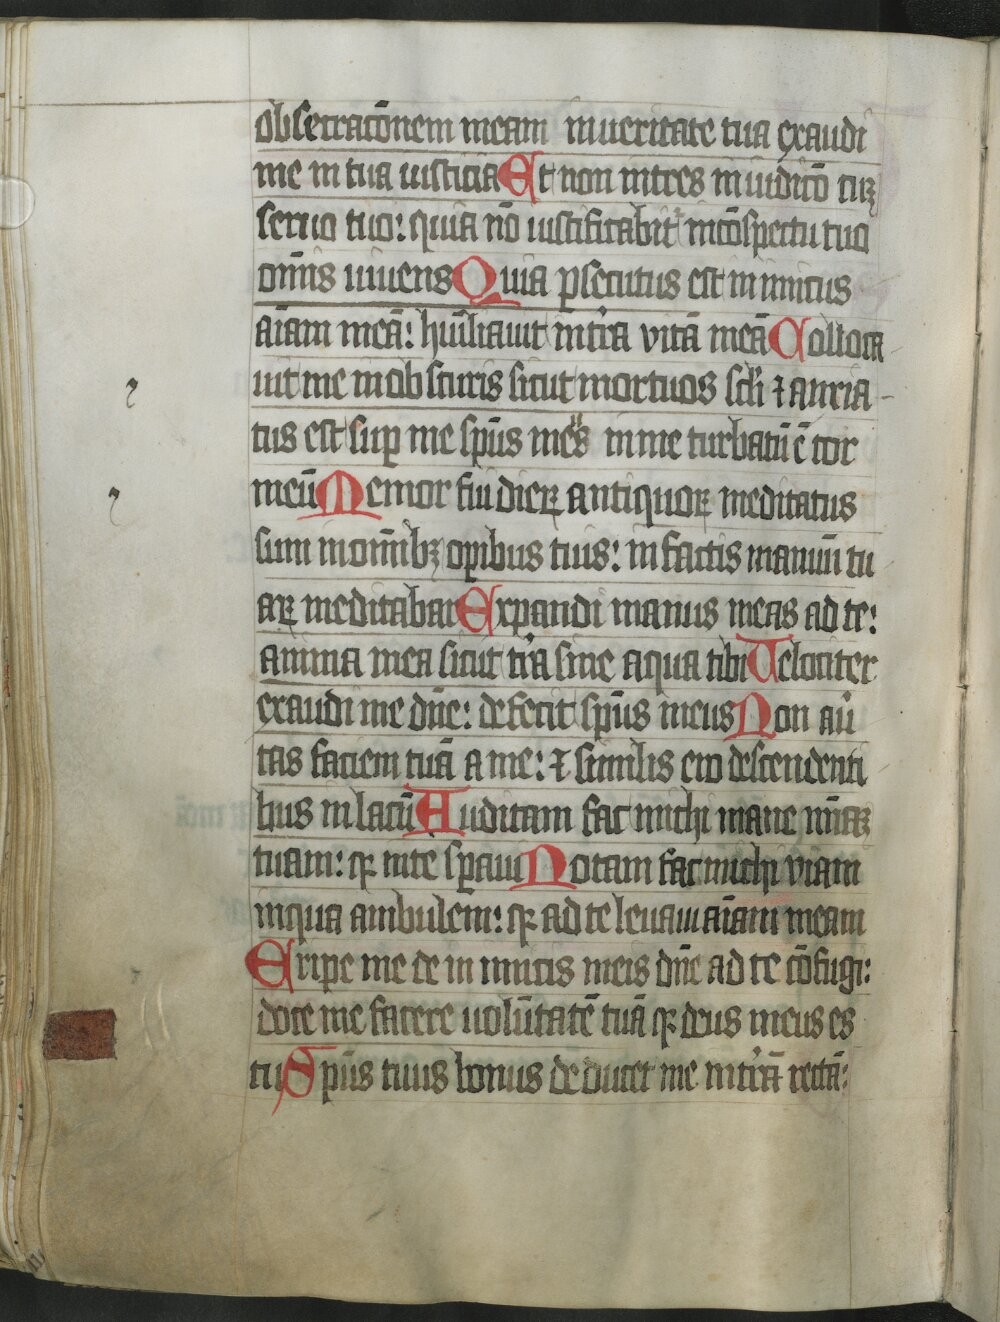 obsecracōnem meam in ueritate tua exaudi
me in tua iusticia Et non intres in iudicō cuꝫ
seruo tuo: quia nō iustificabit᷑ in cōspectu tuo
om̄is uiuens Quia ꝑsecutus est inimicus
aīam meā: hūiliauit in tr̄a vitā meā Colloca
uit me in obscuris sicut mortuos scl̄i ⁊ anxia
tus est suꝑ me sp̄us meꝰ in me turbatū ē cor
meū Memor fui dieꝝ antiquoꝝ meditatus
sum in om̄ibꝫ oꝑibus tuis: in factis manuū tu
aꝝ meditabar Expandi manus meas ad te:
anima mea sicut tr̄a sine aqua tibi Velociter
exaudi me dn̄e: defecit sp̄us meus Non au̇
tas faciem tuā a me: ⁊ similis ero descendenti
bus in lacū Auditam fac michi mane mīaꝫ
tuam: qꝛ in te sꝑaui Notam fac michi viam
in qua ambulem: qꝛ ad te leuaui aīam meam
Eripe me de inimicis meis dn̄e ad te cōfugi:
doce me facere uolūtatē tuā qꝛ deus meus es
tu Sp̄us tuus bonus deducet me in tr̄ā rectā: